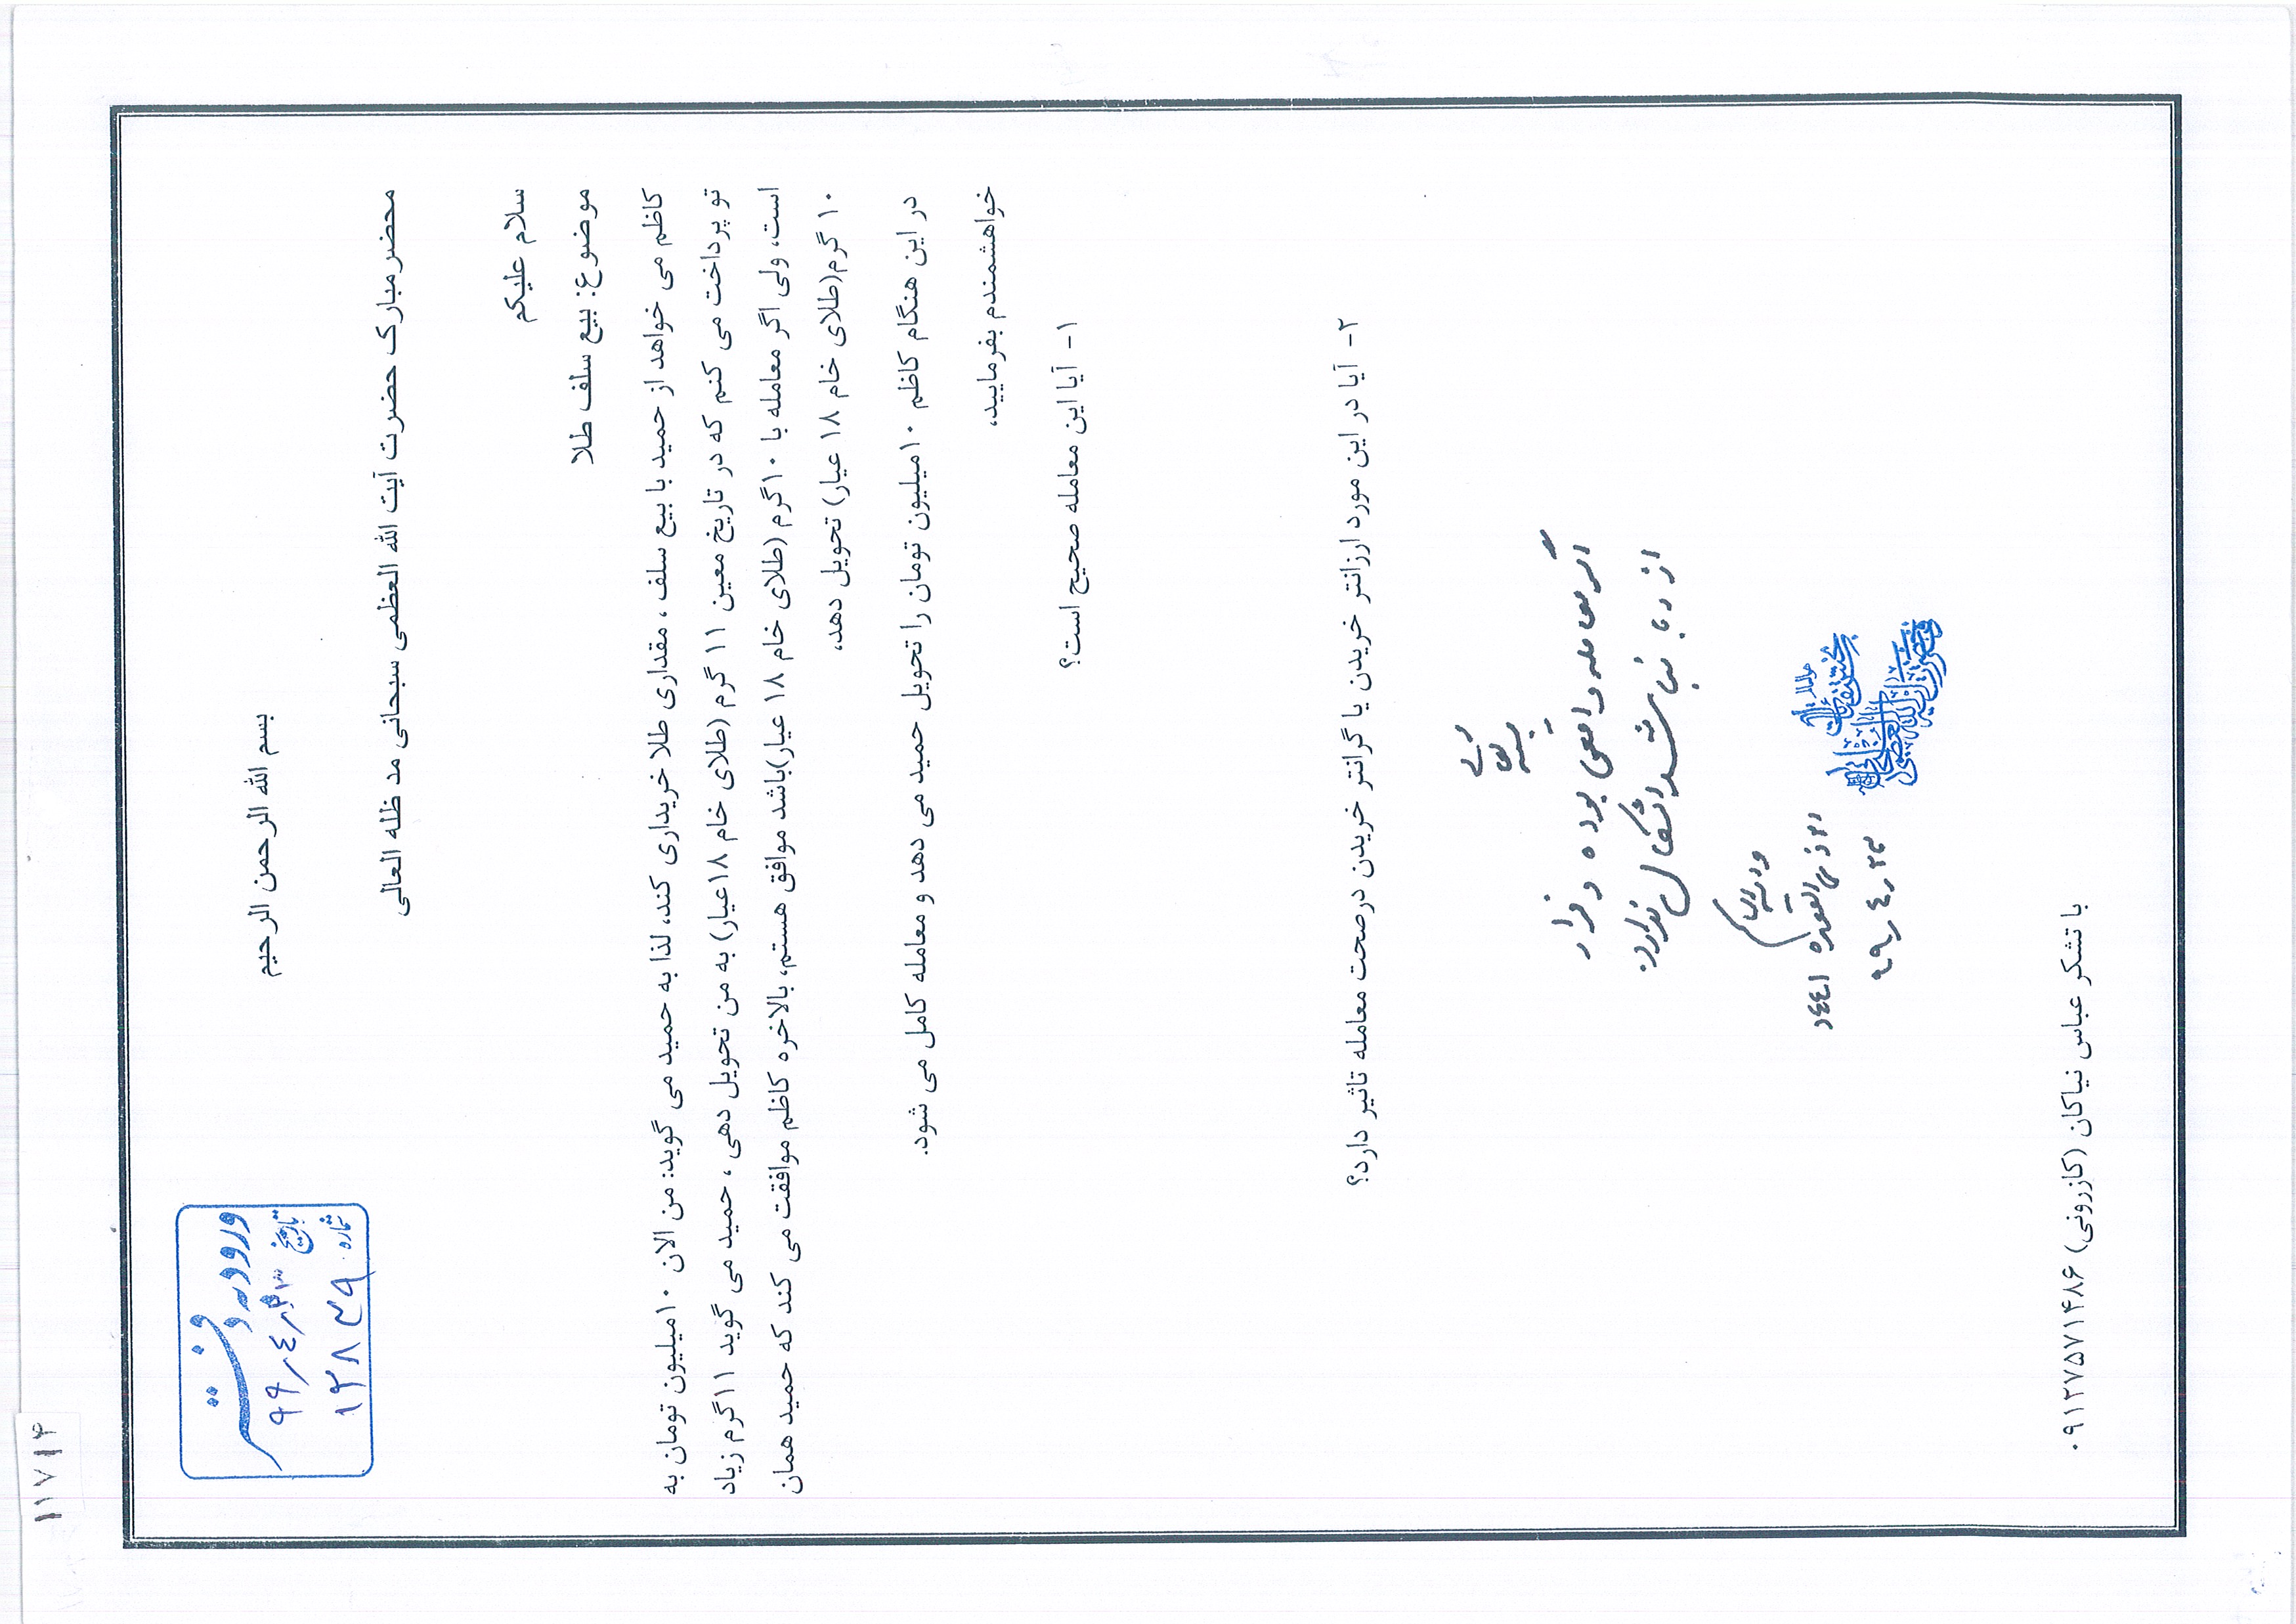 ۱۱۷۱۴
ورود به دفتر
تاریخ ۹۹٫۴٫
شماره ۱۲۸۳۹
بسم الله الرحمن الرحیم
محضر مبارک حضرت آیت الله العظمی سبحانی مد ظله العالی
سلام علیکم
موضوع: بیع سلف طلا
کاظم می خواهد از حمید با بیع سلف ، مقداری طلا خریداری کند، لذا به حمید می گوید: من الان ۱۰میلیون تومان به
تو پرداخت می کنم که در تاریخ معین ۱۱ گرم (طلای خام ۱۸عیار) به من تحویل دهی ، حمید می گوید ۱۱گرم زیاد
است، ولی اگر معامله با ۱۰گرم (طلای خام ۱۸ عیار)باشد موافق هستم، بالاخره کاظم موافقت می کند که حمید همان
۱۰ گرم(طلای خام ۱۸ عیار) تحویل دهد،
در این هنگام کاظم ۱۰میلیون تومان را تحویل حمید می دهد و معامله کامل می شود.
خواهشمندم بفرمایید،
۱- آیا این معامله صحیح است؟
۲- آیا در این مورد ارزانتر خریدن یا گرانتر خریدن درصحت معامله تاثیر دارد؟
اگر معامله واقعی بوده و فرار
از ربا نباشد اشکال ندارد.
والله العالم
ذی القعده ۱۴۴۱
۹۹٫۴٫۲۳
با تشکر عباس نیاکان (کازرونی) ۰۹۱۲۷۵۷۱۴۸۶